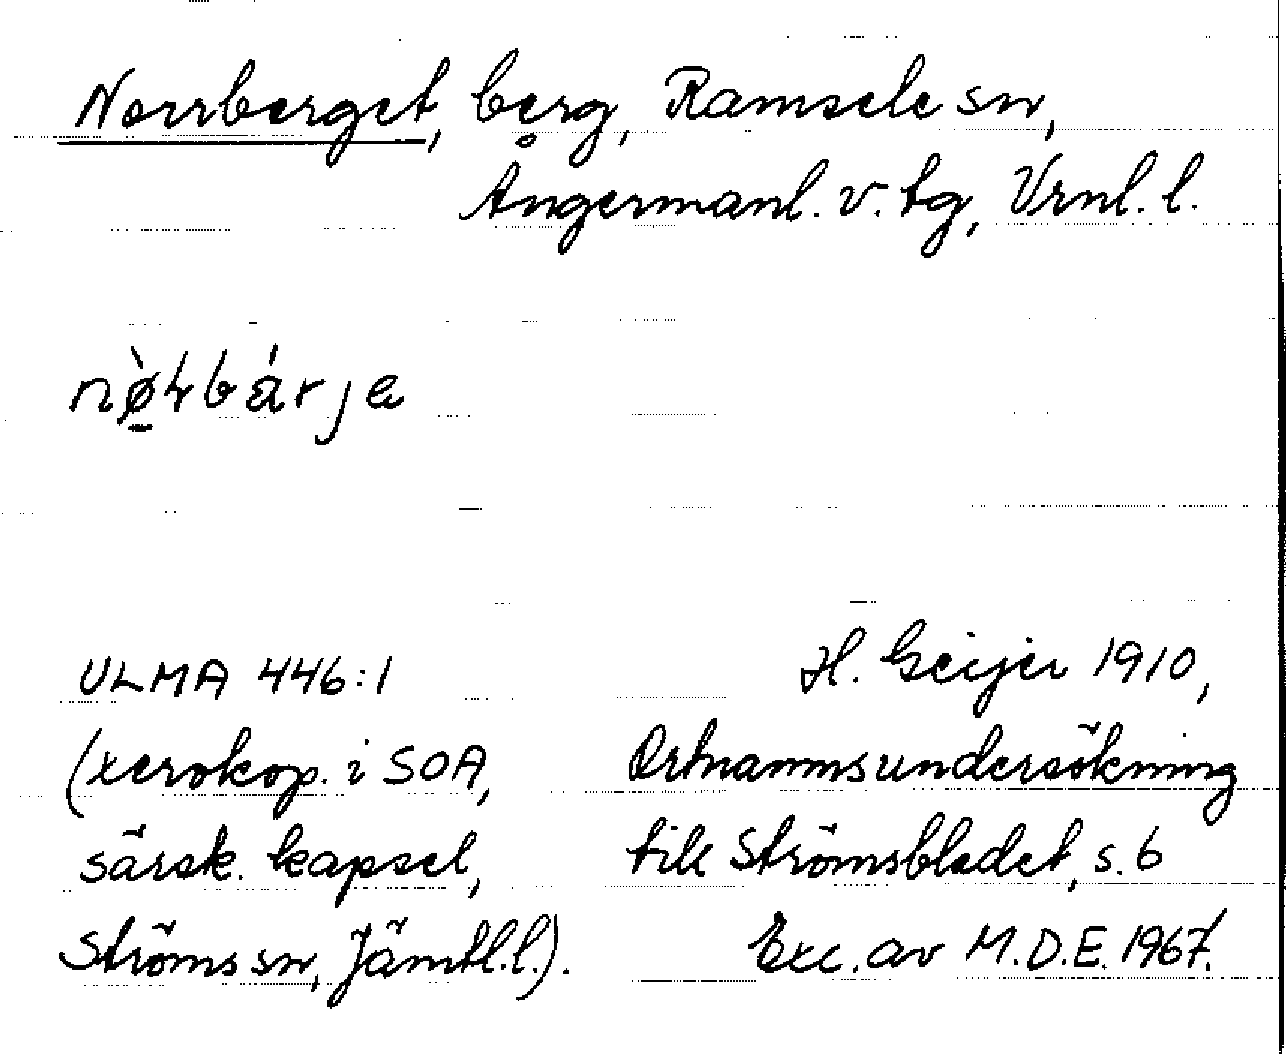 Norrberget, berg, Ramsele sn,
Ångermanl. v. tg, Vrnl. l.
ULMA 446:1
(xerokop. i SOA,
särsk. kapsel,
Ströms sn, Jämtl.l.).
H. Geijer 1910,
Ortnamnsundersökning
till Strömsbladet, s. 6
Exc. av M.D.E. 1967.